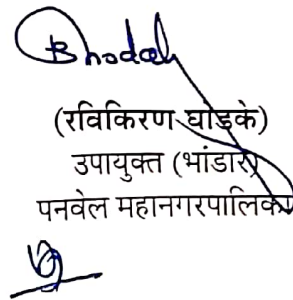 (रविकिरण घोडके)
उपायुक्त (भांडार)
पनवेल महानगरपालिका